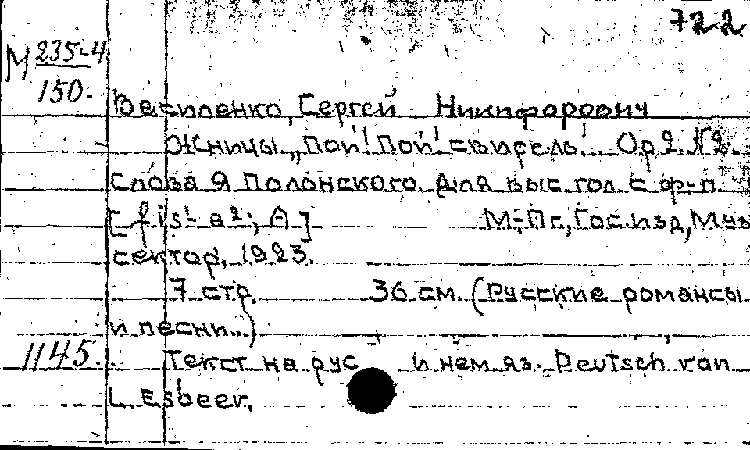 722
М 235-4
150.
Василенко, Сергей Никифорович
Жницы „Пой! Пой! свирель! Op 2 №2.
Слова Я Полонского. Для выс гол с ф-п.
[fis¹ a²; A] М-Пг, Гос. изд, Муз
сектор, 1923.
7 стр. 36 см. (Русские романсы
и песни...)
1145. Текст на рус и нем яз. Deutsch von
L. Esbeer.